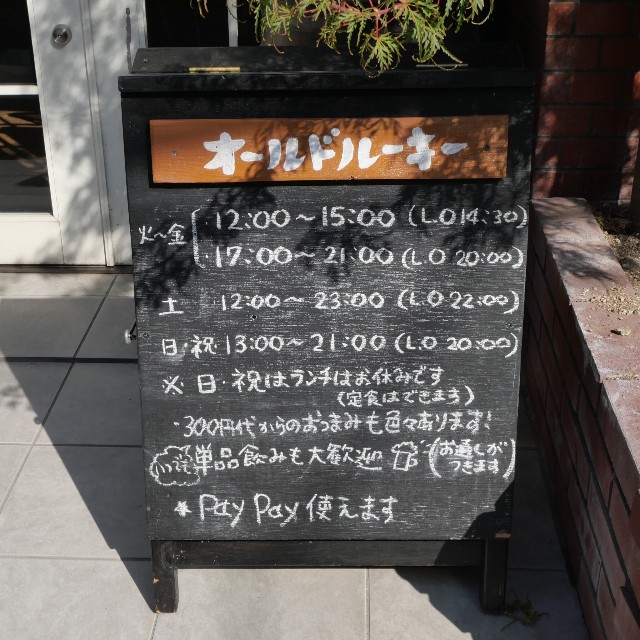 オールドルーキー
火〜金 12:00〜15:00 (L.O 14:30)
17:00〜21:00 (L.O 20:00)
土 12:00〜23:00 (L.O 22:00)
日・祝 13:00〜21:00 (L.O 20:00)
※ 日・祝はランチはお休みです
(定食はできます)
・300円代からのおつまみも色々あります!
単品飲みも大歓迎 (お通しがつきます)
★ PayPay 使えます